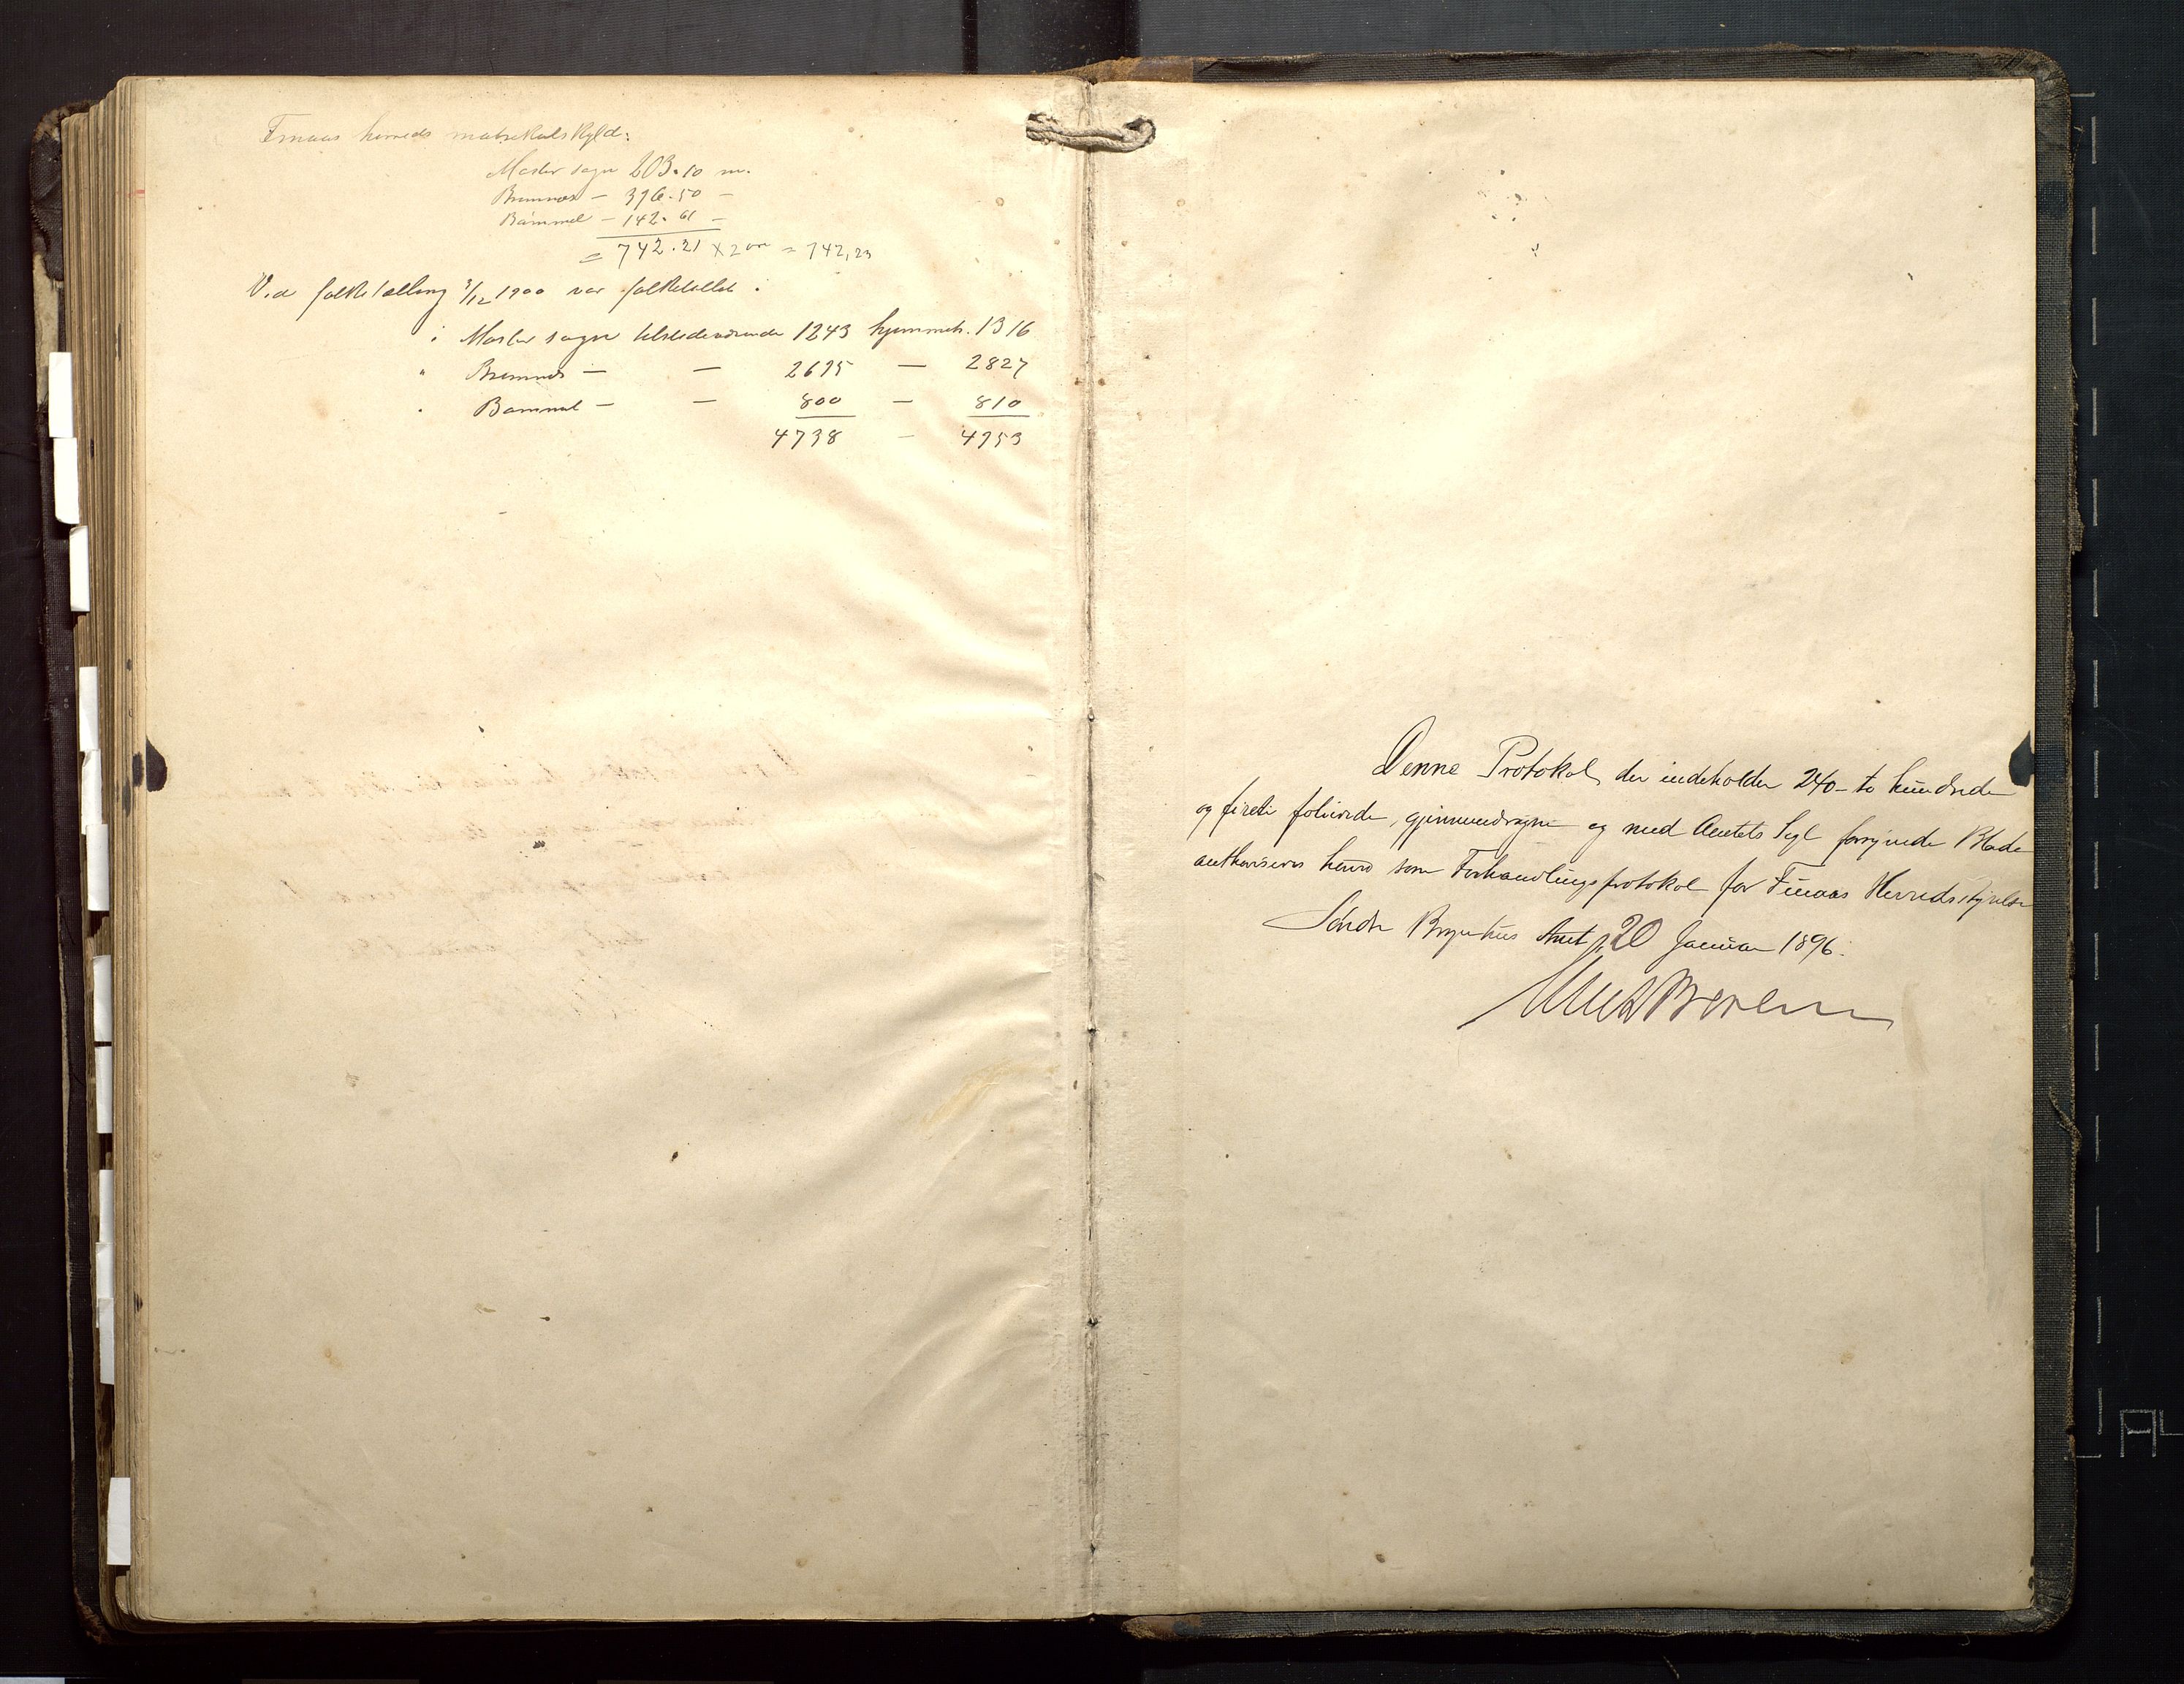 Finaas herreds matrikulskyld:
Moster sogn 203.10 m.
Bremnæs — 396.50 —
Bømmel — 142.61 —
= 742.21 × 2 øre = 742,23
Ved folketælling 3/12 1900 var folketallet:
i Moster sogn tilstedeværende 1243 hjemmeh. 1316
" Bremnes — — 2695 — 2827
" Bømmel — — 800 — 810
4738 — 4953
Denne Protokol, der indeholder 240 - to hundrede
og fireti folierede, gjennemdragne og med Amtets Segl forsynede Blade
authoriseres herved som Forhandlingsprotokol for Finaas Herredsstyrelse
Søndre Bergenhus Amt, 20 Januar 1896.